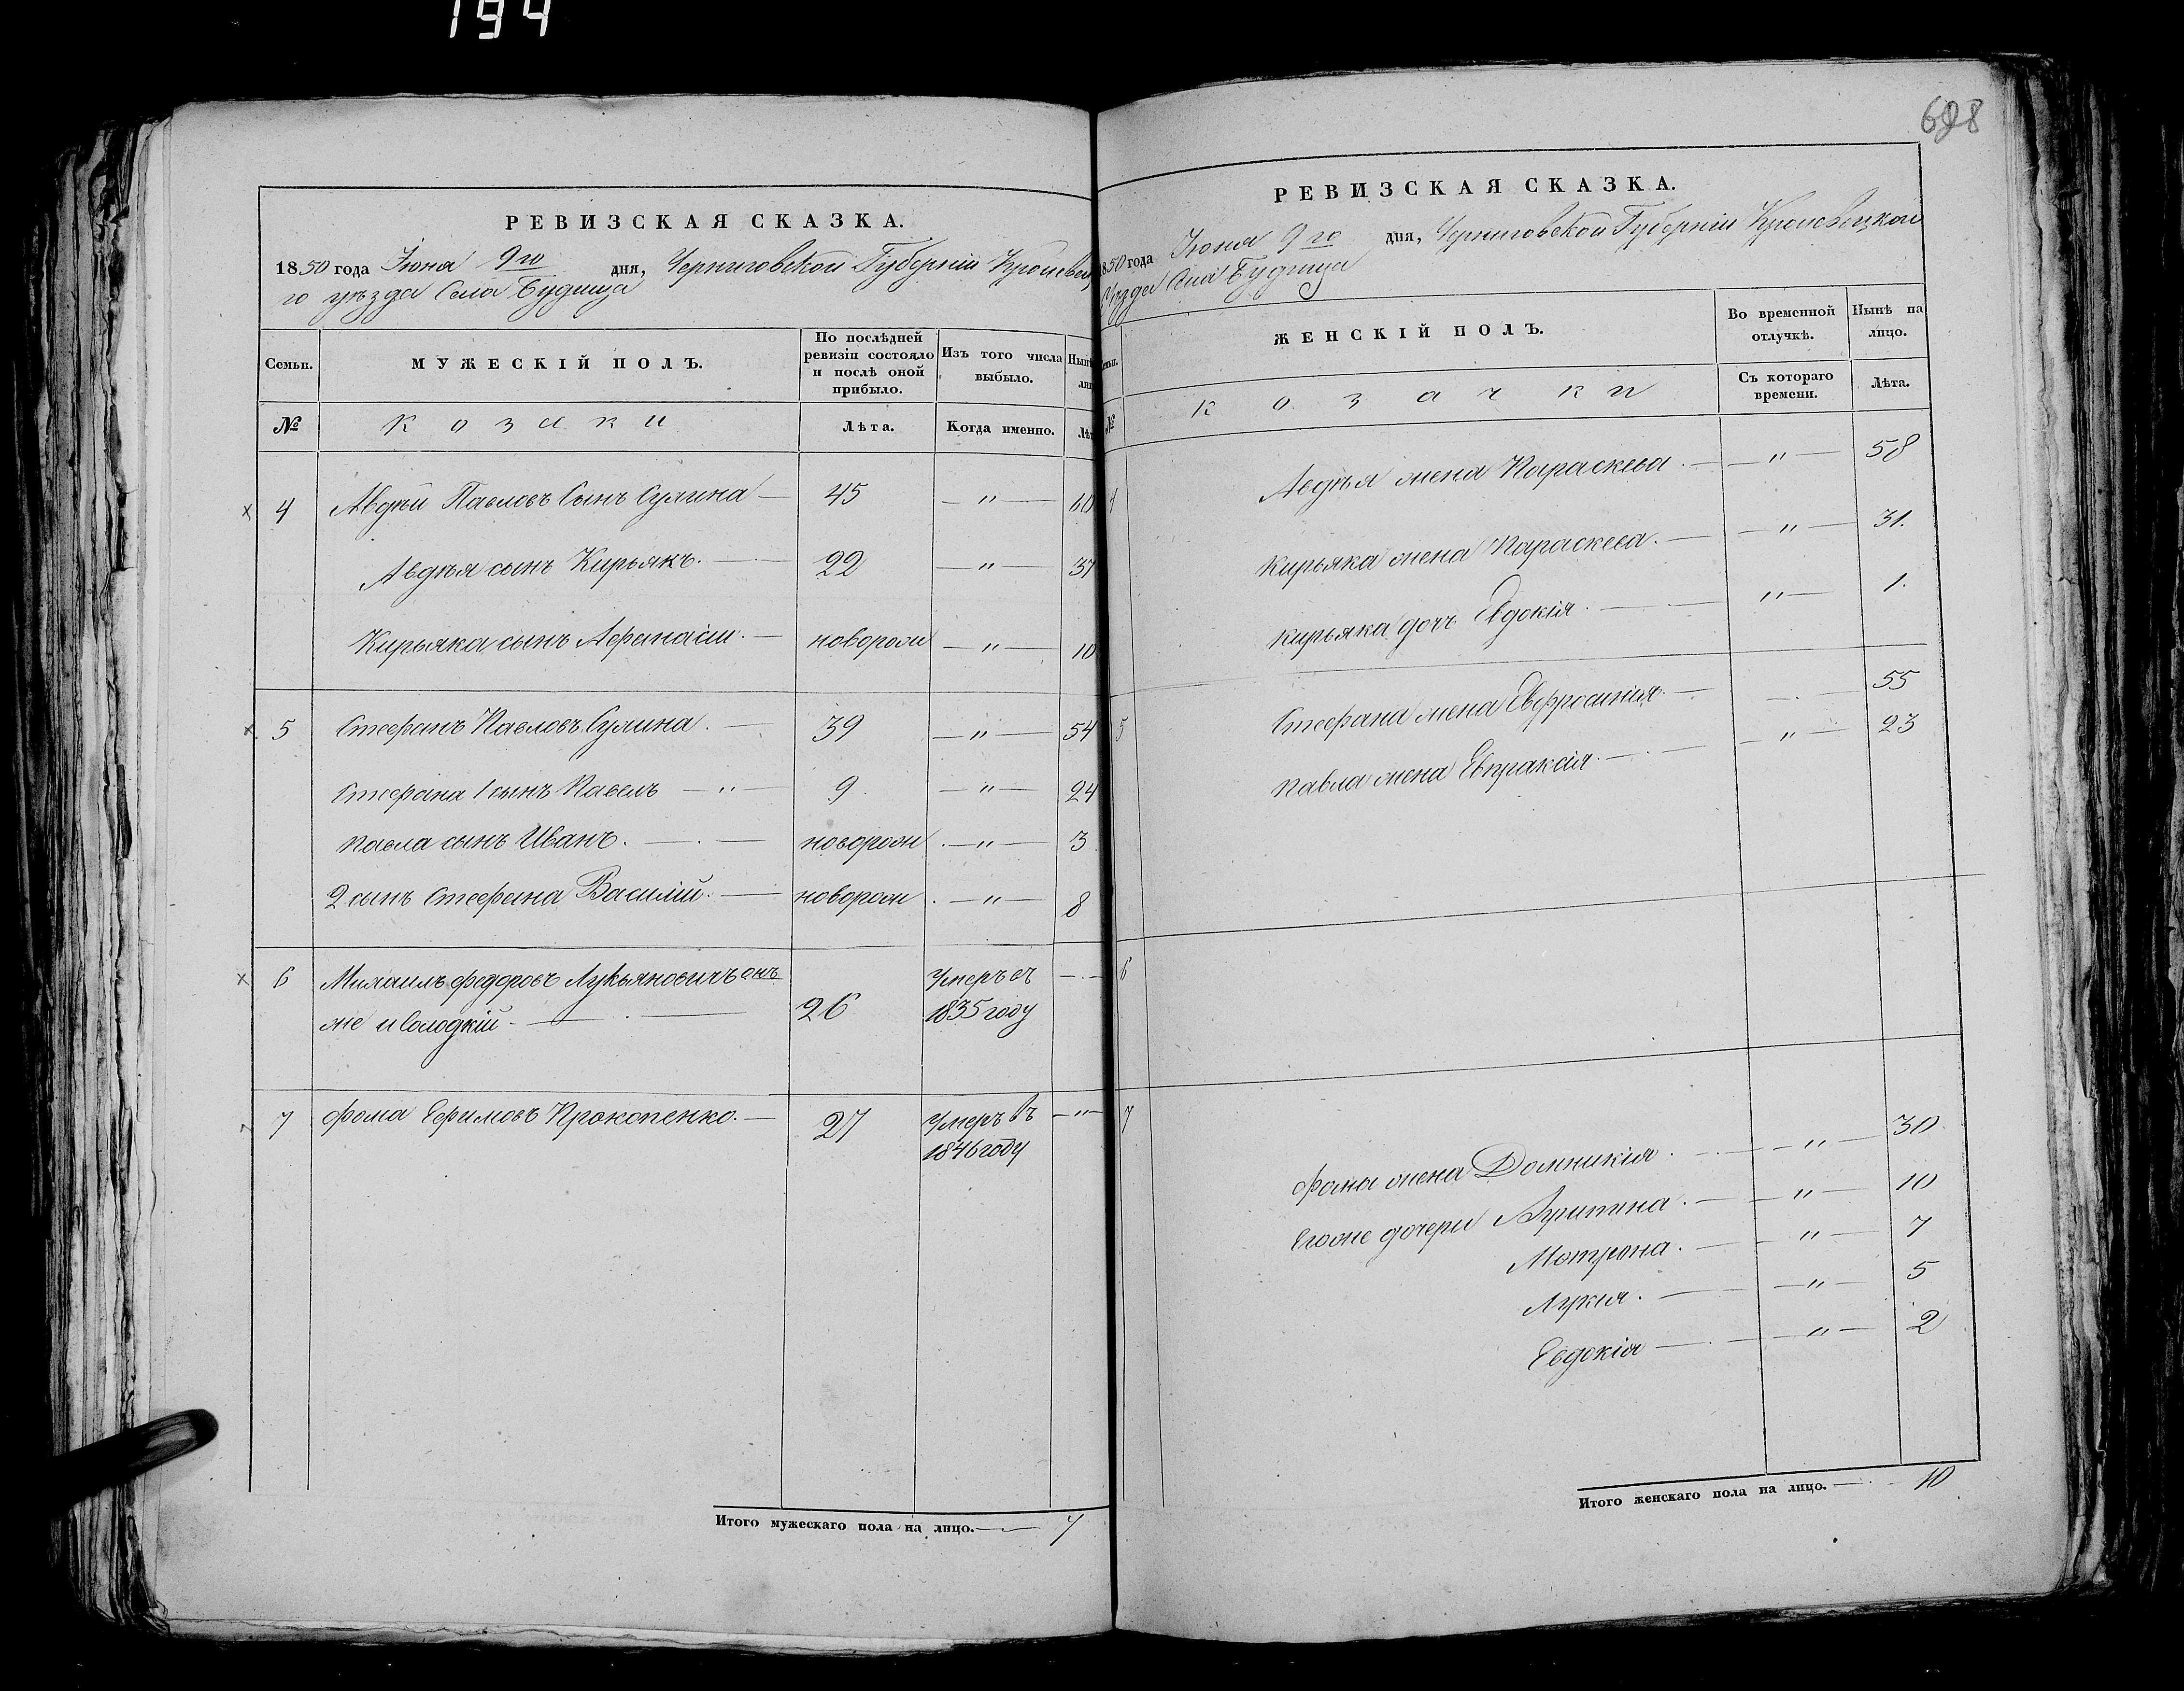 194
РЕВИЗСКАЯ СКАЗКА.
1850 года Іюня 9го дня, Черниговской Губерніи Кролевец
го уѣзда Села Будища
Семьи. МУЖЕСКІЙ ПОЛЪ. По послѣдней ревизіи состояло и послѣ оной прибыло. Изъ того числа выбыло.
№ козаки Лѣта. Когда именно.
4 Авдѣй Павловъ Сынъ Сулима — 45 — " — 60
Авдѣя сынъ Кирьякъ. — 22 — " — 37
Кирьяка сынъ Афанасій. — новорож — " — 10
5 Стефанъ Павловъ Сулима. — 39 — " — 54
Стефана 1 сынъ Павелъ — " — 9. — " — 24
Павла сынъ Иванъ. — новорож . — " — 3
2 сынъ Стефана Василій. — новорож . — " — 8
6 Михаилъ Федоровъ Лукьяновичъ онъ
же и Солодкій. — 26 Умеръ въ 1835 году
7 Фома Ефимовъ Прокопенко. — 27 Умеръ въ 1846 году — " —
Итого мужескаго пола на лицо. — 7
698
РЕВИЗСКАЯ СКАЗКА.
1850 года Іюня 9го дня, Черниговской Губерніи Кролевецкаго
Уѣзда Села Будища
ЖЕНСКІЙ ПОЛЪ. Во временной отлучкѣ. Нынѣ на лицо.
№ козачки Съ котораго времени. Лѣта.
4 Авдѣя жена Параскева. — " — 58
Кирьяка жена Параскева. — " — 31.
Кирьяка дочь Евдокія. — " — 1.
5 Стефана жена Евфросинія. — 55
Павла жена Евпраксія. — " — 23
6
7 Фомы жена Домникія. — " — 30
Егоже дочери Агрипина. — " — 10
Мотрона. — " — 7
Лукія. — " — 5
Евдокія — " — 2
Итого женскаго пола на лицо. — 10